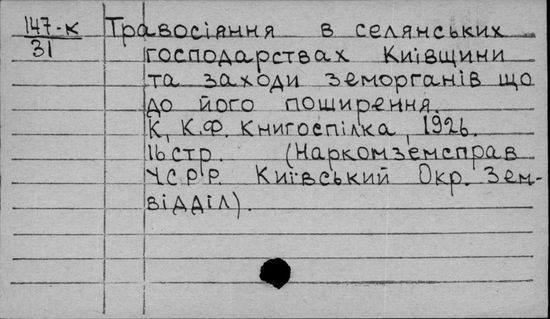 147-к Травосіяння в селянських
31 господарствах Київщини
та заходи земорганів що
до його поширення.
К, К.Ф. Книгоспілка, 1926.
16 стр. (Наркомземсправ
УСРР. Київський Окр. Зем-
відділ).